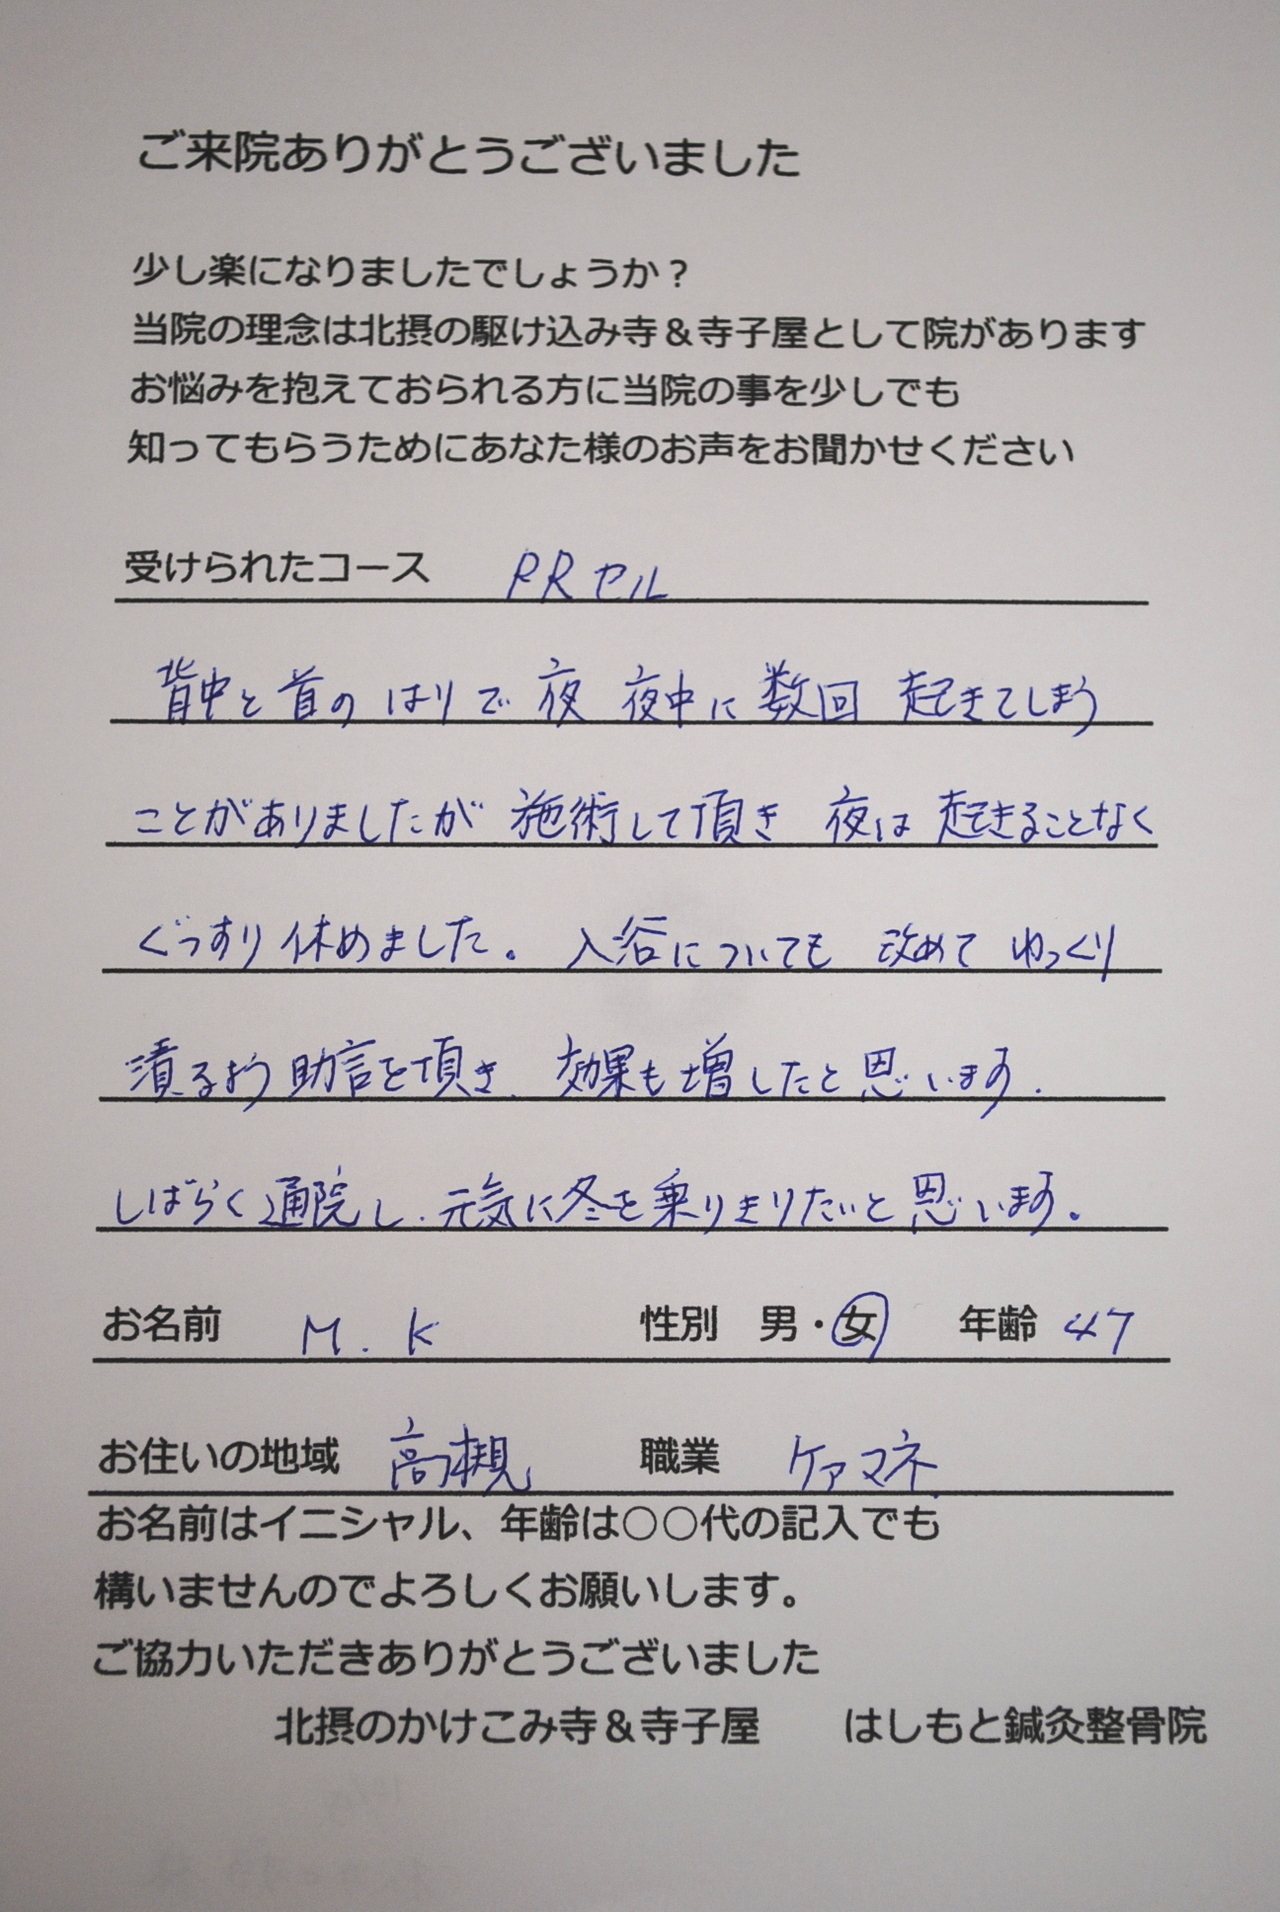 ご来院ありがとうございました
少し楽になりましたでしょうか？
当院の理念は北摂の駆け込み寺＆寺子屋として院があります
お悩みを抱えておられる方に当院の事を少しでも
知ってもらうためにあなた様のお声をお聞かせください
受けられたコース PRセル
背中と首のはりで夜 夜中に数回 起きてしまう
ことがありましたが 施術して頂き 夜は 起きることなく
ぐっすり休めました。入浴についても 改めて ゆっくり
漬るよう助言を頂き、効果も増したと思います.
しばらく通院し、元気に冬を乗りきりたいと思います。
お名前 M.K 性別 男・女 年齢 47
お住いの地域 高槻 職業 ケアマネ
お名前はイニシャル、年齢は○○代の記入でも
構いませんのでよろしくお願いします。
ご協力いただきありがとうございました
北摂のかけこみ寺＆寺子屋 はしもと鍼灸整骨院